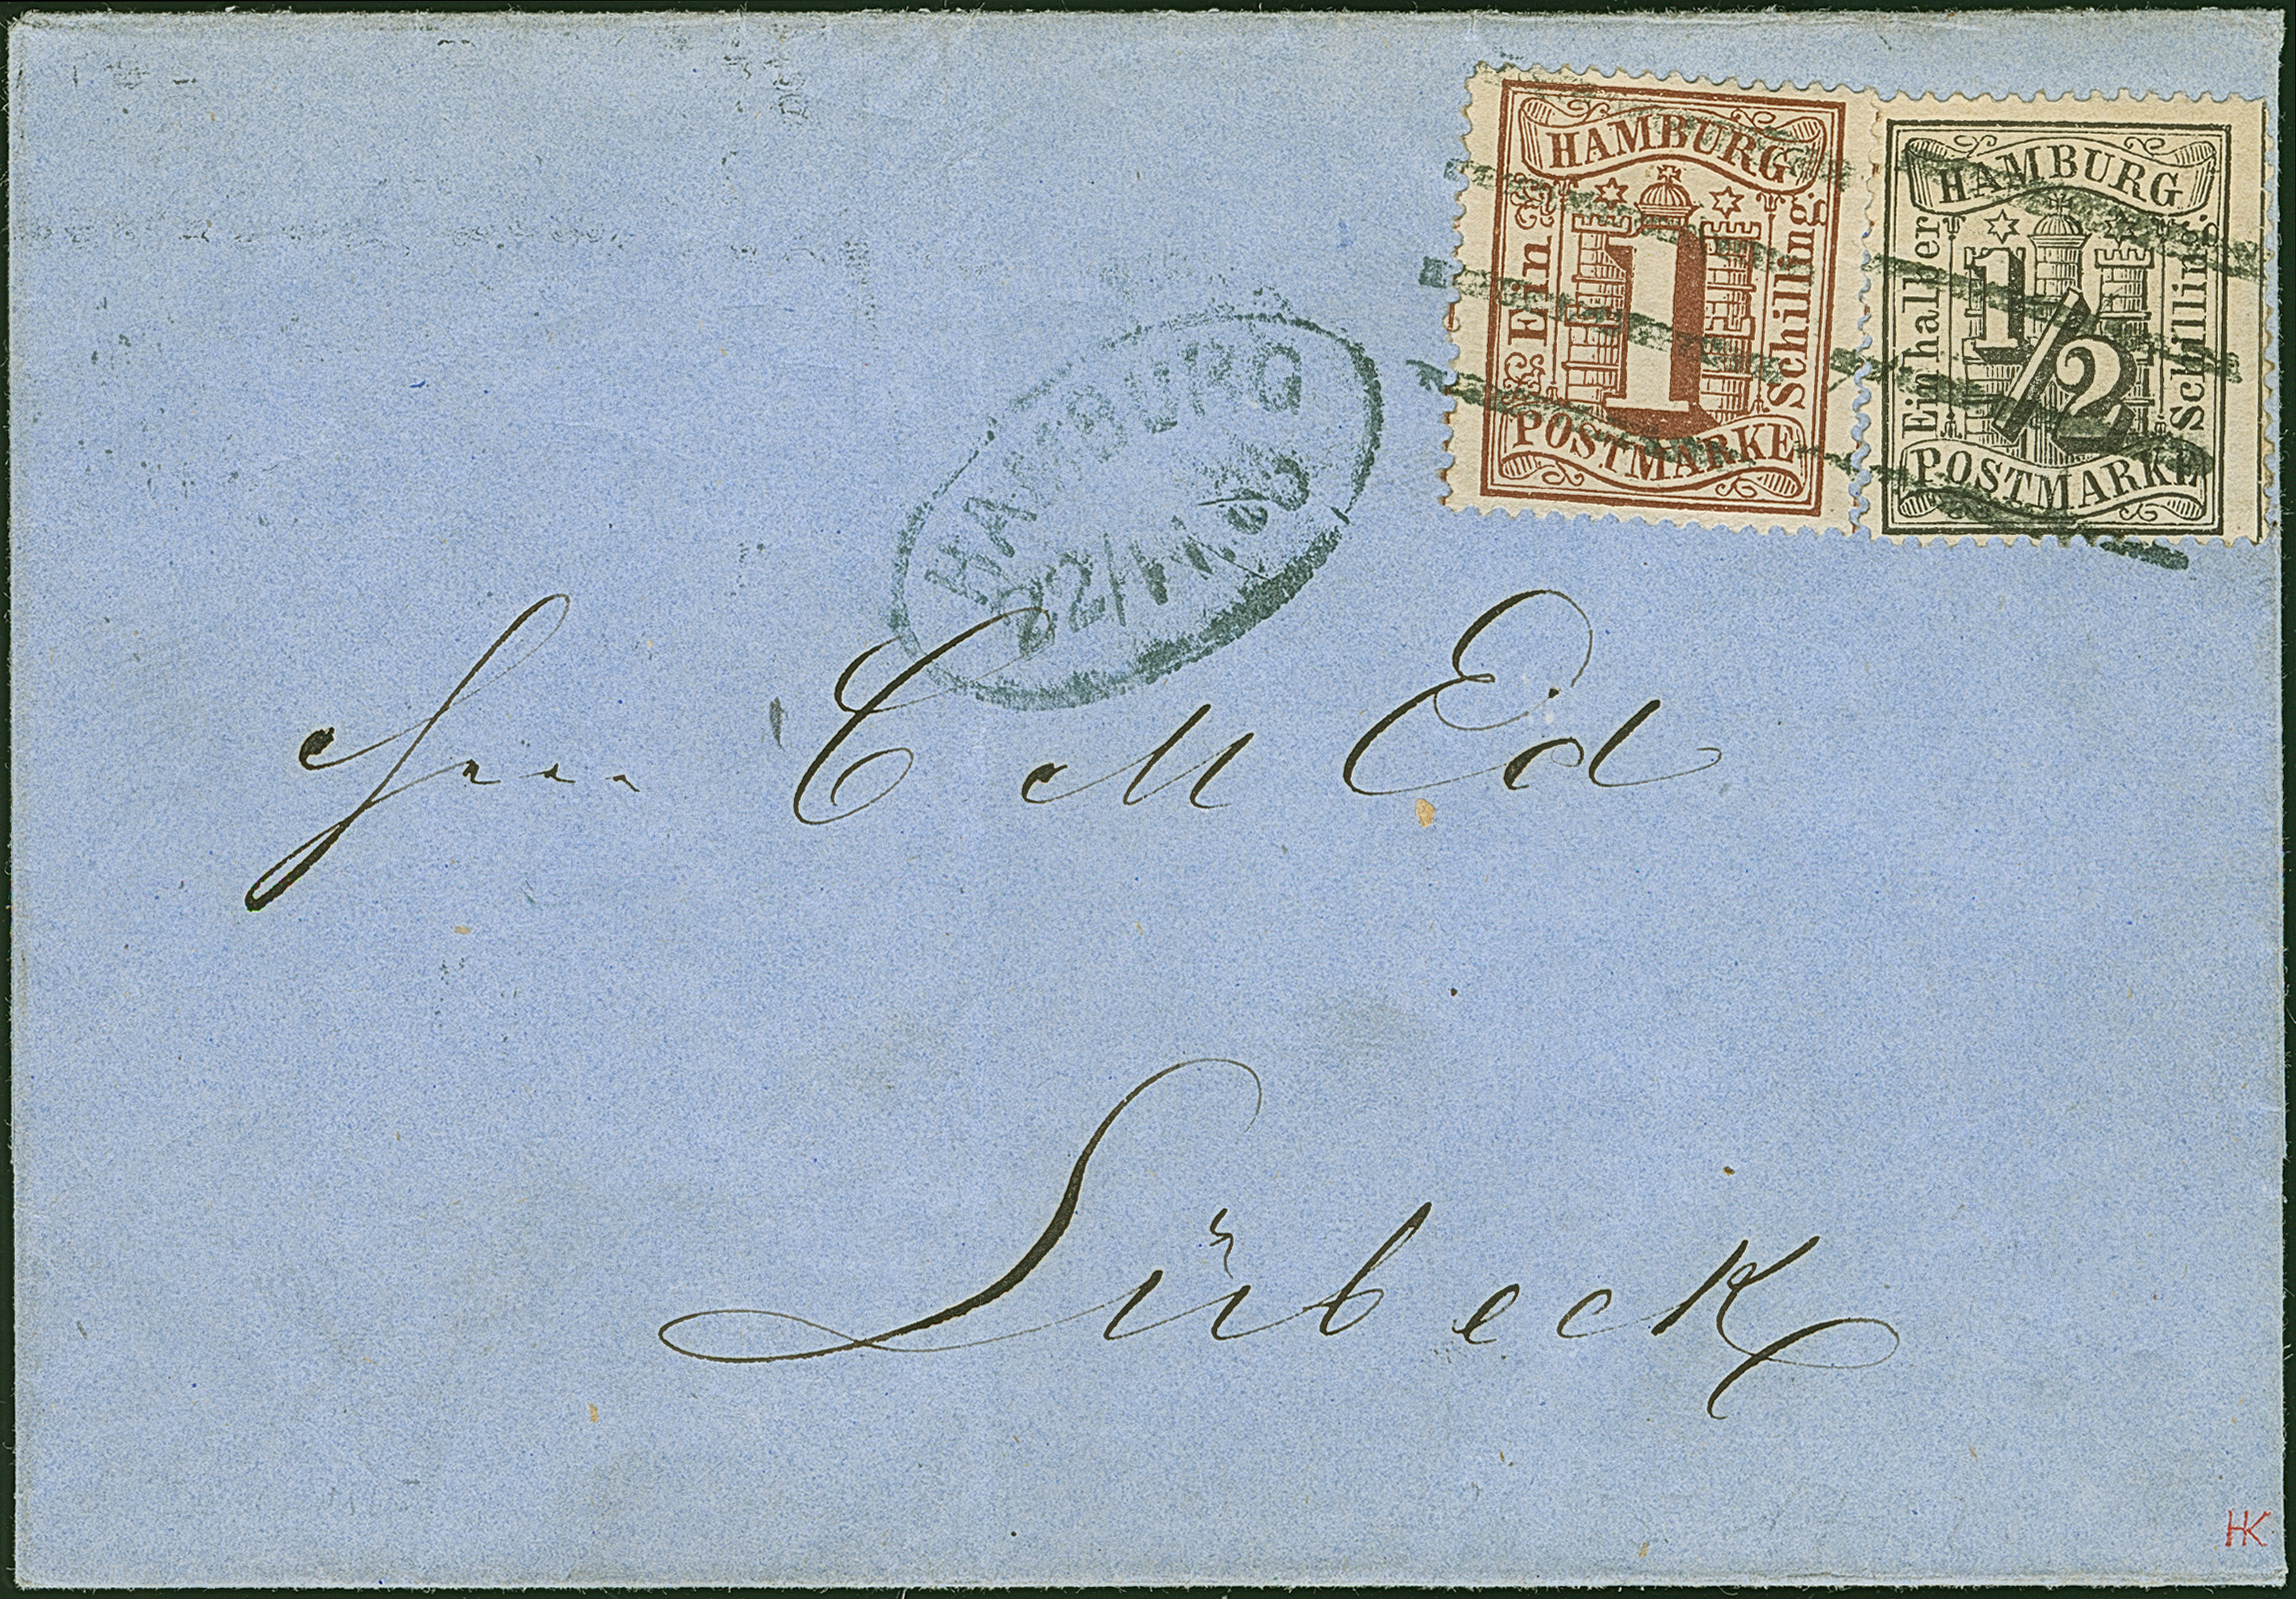 HAMBURG
Ein 1 Schilling.
POSTMARKE
HAMBURG
Einhalber 1/2 Schilling.
POSTMARKE
HAMBURG
22/11
Herrn C M Ed
Lübeck
HK